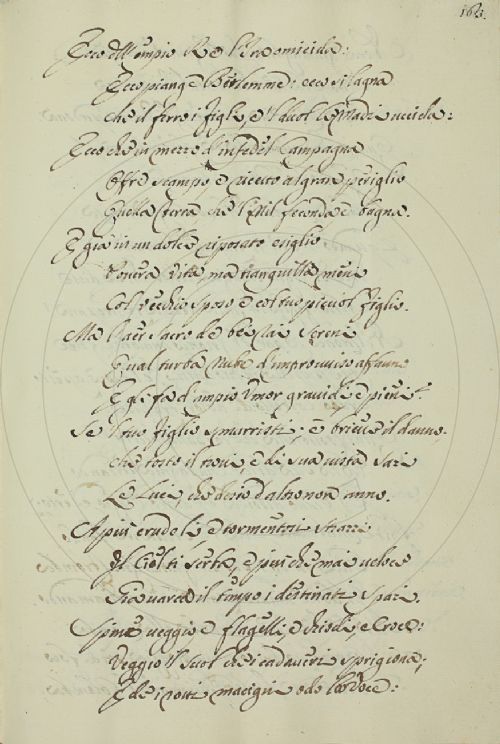 163.
Ecco dell'empio Re l'ira omicida:
Ecco piange Betlemme: ecco si lagna
che il ferro i figli, e 'l duol le Madri uccida:
Ecco che in mezzo d'infedel Campagna
Offre scampo e ricetto al gran periglio
Quella terra che 'l Nil feconda e bagna.
E già in un dolce riposato esiglio
Povera vita, ma tranquilla meni
Col vecchio sposo, e col tuo picciol figlio.
Ma l'aer sacro de' bei rai sereni
Qual turba Nube d'improvviso affanno
E gli fa d'ampio Umor gravidi e pieni?
Se 'l tuo figlio smarristi; è brieve il danno.
che tosto il trovi, e di sua vista sazi
Le Luci, che desio d'altro non anno.
A più crudeli e tormentosi strazi
Il Ciel ti serba, e più che mai veloce
Già varca il tempo i destinati spazi.
Spine veggio e flagelli, e chiodi, e Croce:
Veggio 'l suol che i cadaveri sprigiona;
E de' i rotti macigni odo la voce: